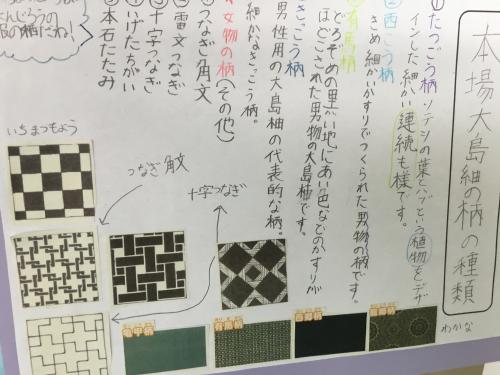 本場大島紬の柄の種類
わかな
①たつごう柄 ソテツの葉とハブという植物をデザ
インした細かい連続も様です。
柄
きめ細かいかすりでつくられた男物の柄です。
有馬柄
どろぞめの黒い地にあい色などのかすりが
ほどこされた男物の大島紬です。
きっこう柄
男性用の大島紬の代表的な柄。
細かなきっこう柄。
女物の柄(その他)
つなぎ角文
雷文つなぎ
十字つなぎ
いげたちがい
本石たたみ
んじろうの
柄だね!
いちまつもよう
つなぎ角文
十字つなぎ